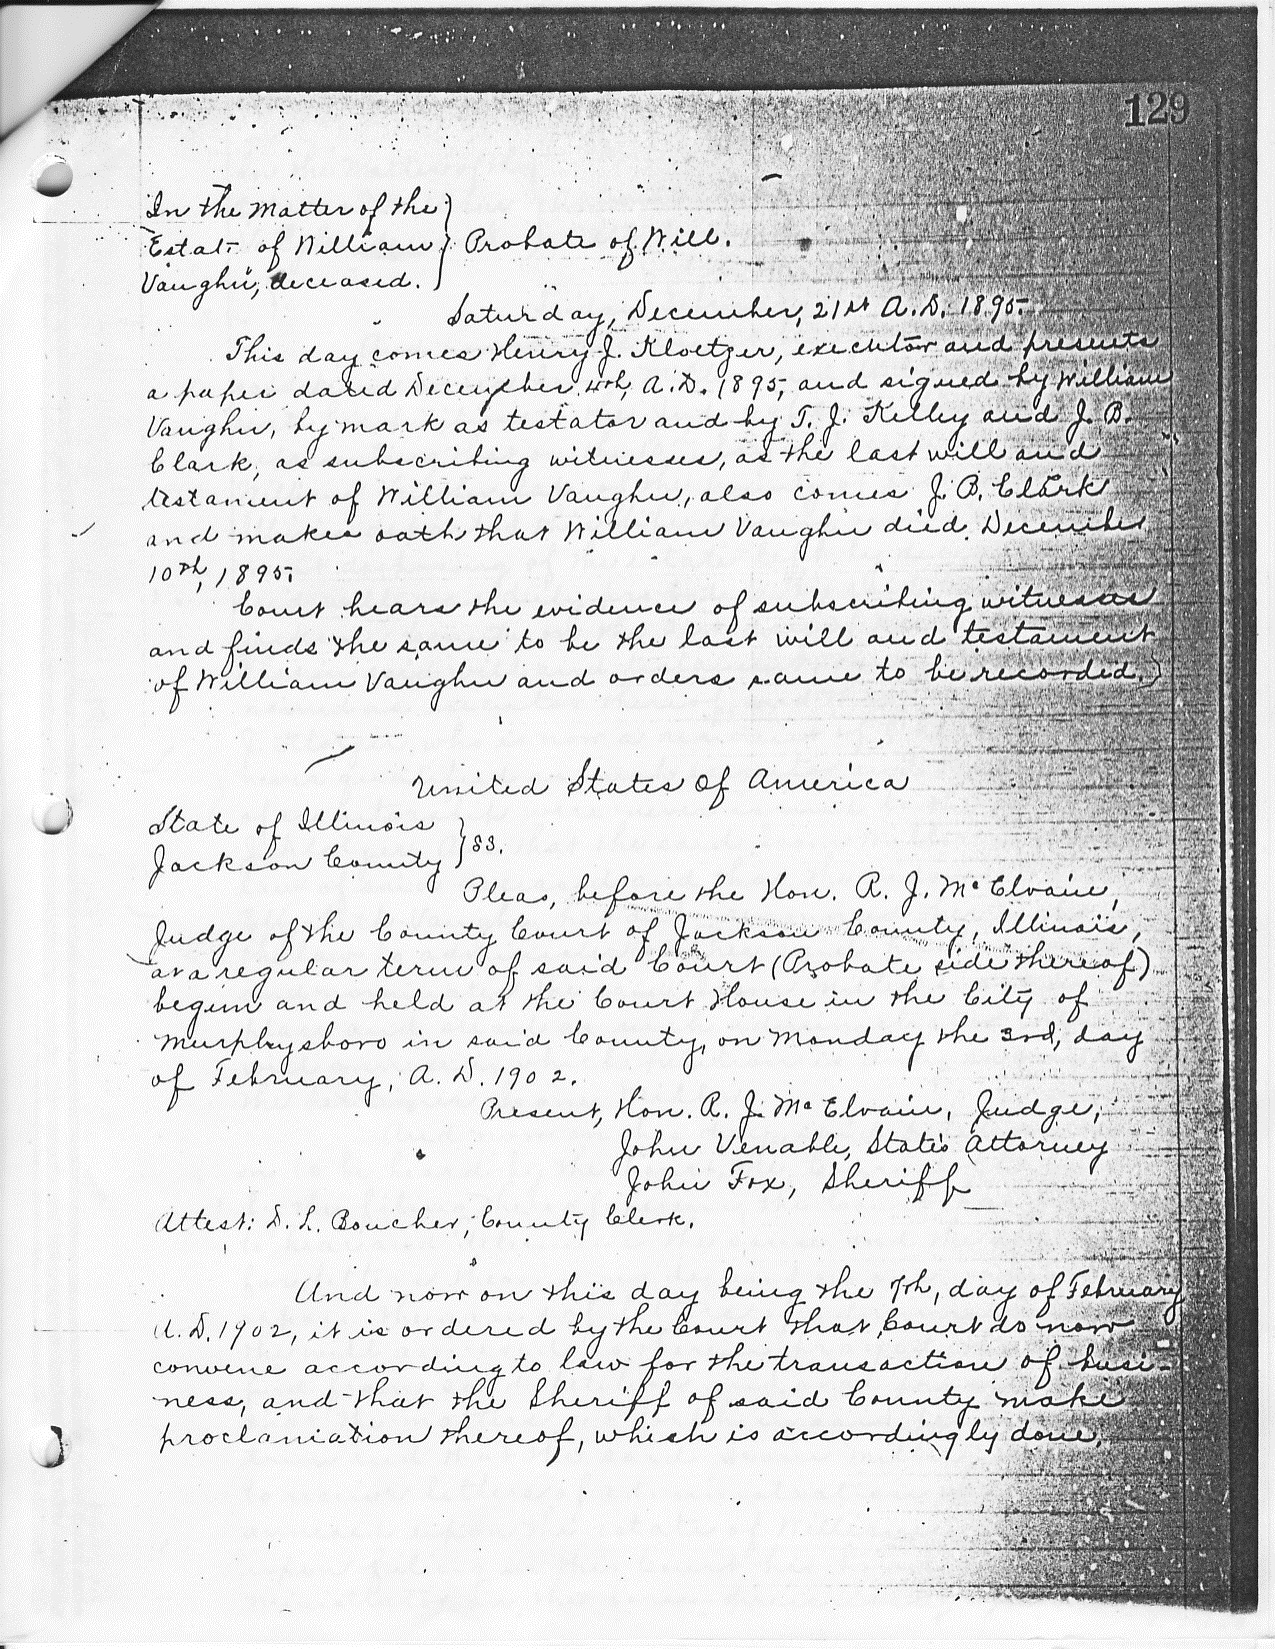 129
In the Matter of the
Estat- of William } Probate of Will.
Vaughn, deceased.
Saturday, December, 21st A.D. 1895.
This day comes Henry J. Kloetzer, executor and presents
a paper dated December 4th, A.D. 1895, and signed by William
Vaughn, by mark as testator and by T. J. Kelley and J. B.
Clark, as subscribing witnesses, as the last will and
testament of William Vaughn, also comes J. B. Clark
and makes oath that William Vaughn died December
10th, 1895.
Court hears the evidence of subscribing witnesses
and finds the same to be the last will and testament
of William Vaughn and orders same to be recorded.
United States of America
State of Illinois
Jackson County } SS.
Pleas, before the Hon. R. J. McElvain,
Judge of the County Court of Jackson County, Illinois,
at a regular term of said Court (Probate side thereof)
begun and held at the Court House in the City of
Murphysboro in said County, on Monday the 3rd, day
of February, A. D. 1902.
Present, Hon. R. J. McElvain, Judge,
John Venable, State's Attorney
John Fox, Sheriff
Attest: D. L. Boucher, County Clerk.
And now on this day being the 7th, day of February
A. D. 1902, it is ordered by the Court that Court do now
convene according to law for the transaction of busi-
ness, and that the Sheriff of said County make
proclamation thereof, which is accordingly done.